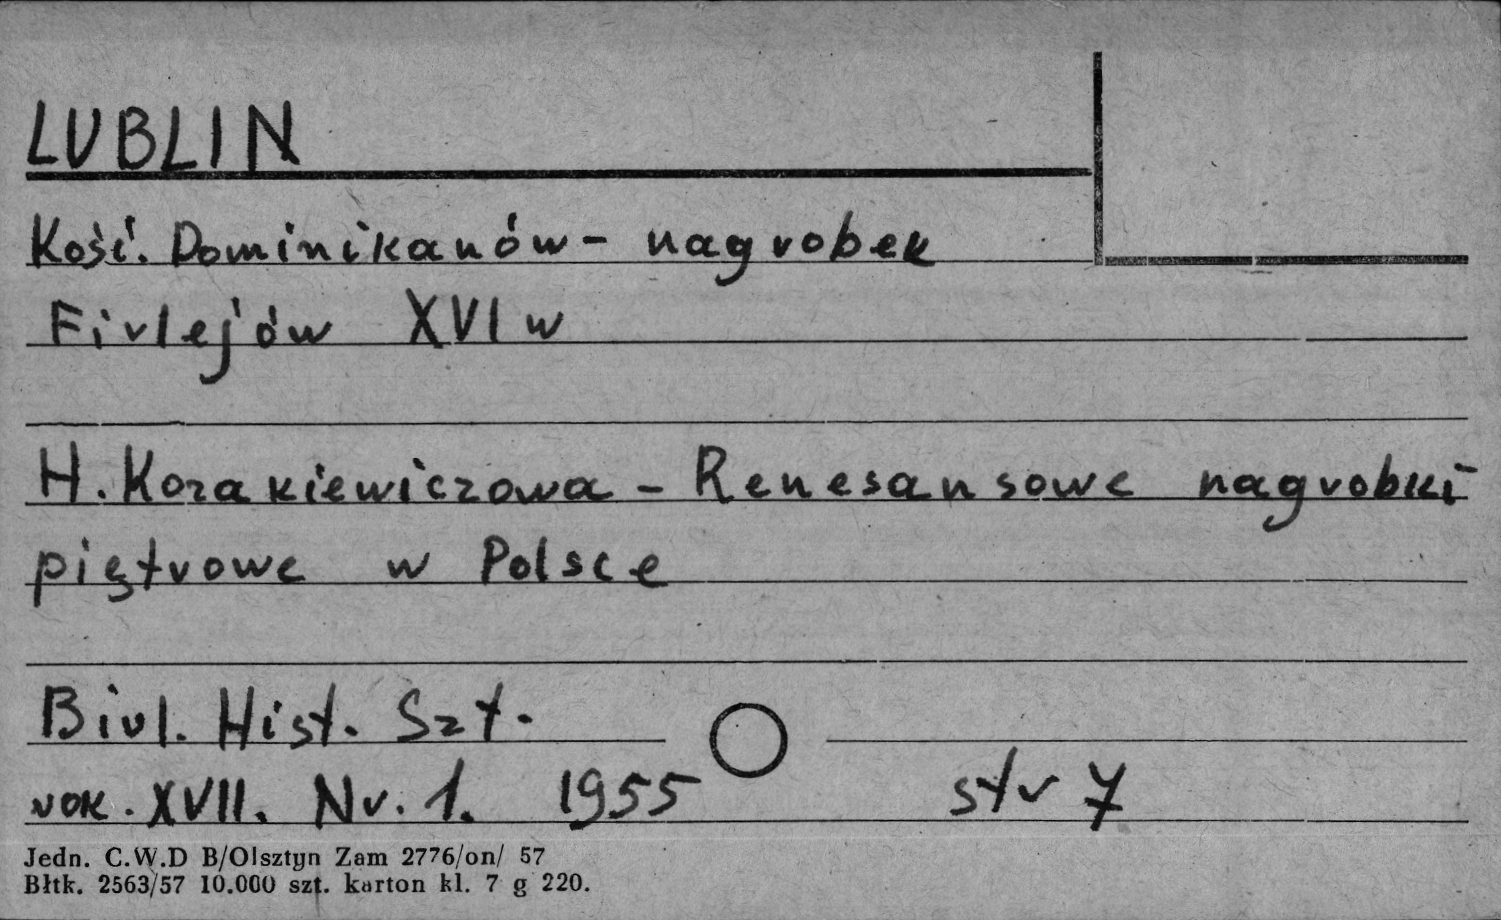 LUBLIN
Kość. Dominikanów - nagrobek
Firlejów XVI w
H. Kozakiewiczowa - Renesansowe nagrobki
piętrowe w Polsce
Biul. Hist. Szt.
rok. XVII. Nr. 1. 1955 str 7
Jedn. C.W.D B/Olsztyn Zam 2776/on/ 57
Błtk. 2563/57 10.000 szt. karton kl. 7 g 220.